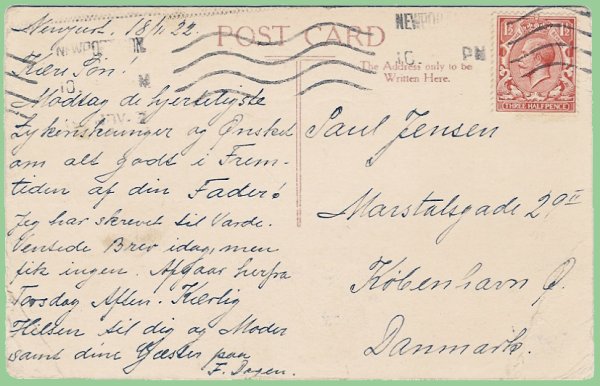 Newport 18/11 22.
Kære Søn!
Modtag de hjerteligste
Lykønskninger og Ønsket
om alt godt i Frem-
tiden af din Fader.
Jeg har skrevet til Varde.
Ventede Brev idag, men
fik ingen. Afgaar herfra
Torsdag Aften. Kærlig
Hilsen til dig og Moder
samt dine Gæster paa
F. Dagen.
POST CARD
The Address only to be
Written Here.
NEWPO
PM
1½ 1½
THREE HALFPENCE
Paul Jensen
Marstalsgade 29 II
København Ø.
Danmark.